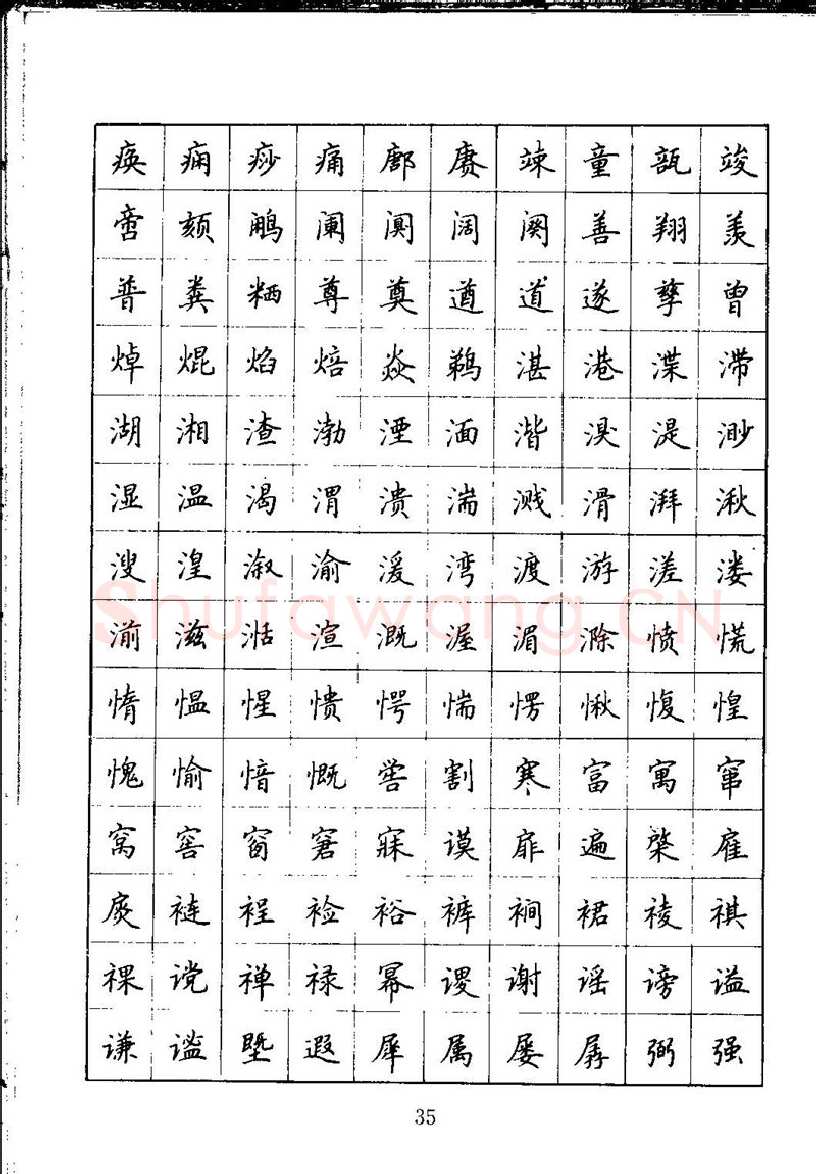 痪 痫 痧 痛 鄌 赓 竦 童 瓿 竣
啻 颏 鹇 阑 阒 阔 阕 善 翔 羡
普 粪 粞 尊 奠 遒 道 遂 孳 曾
焯 焜 焰 焙 焱 鹈 湛 港 渫 滞
湖 湘 渣 渤 湮 湎 湝 湨 湜 渺
湿 温 渴 渭 溃 湍 溅 滑 湃 湫
溲 湟 溆 渝 湲 湾 渡 游 溠 溇
湔 滋 湉 渲 溉 渥 湄 滁 愤 慌
惰 愠 惺 愦 愕 惴 愣 愀 愎 惶
愧 愉 愔 慨 喾 割 寒 富 寓 窜
窝 窖 窗 窘 寐 谟 扉 遍 棨 雇
扊 裢 裎 裣 裕 裤 裥 裙 祾 祺
祼 谠 禅 禄 幂 谡 谢 谣 谤 谥
谦 谧 塈 遐 犀 属 屡 孱 弼 强
35
Shufawang.CN